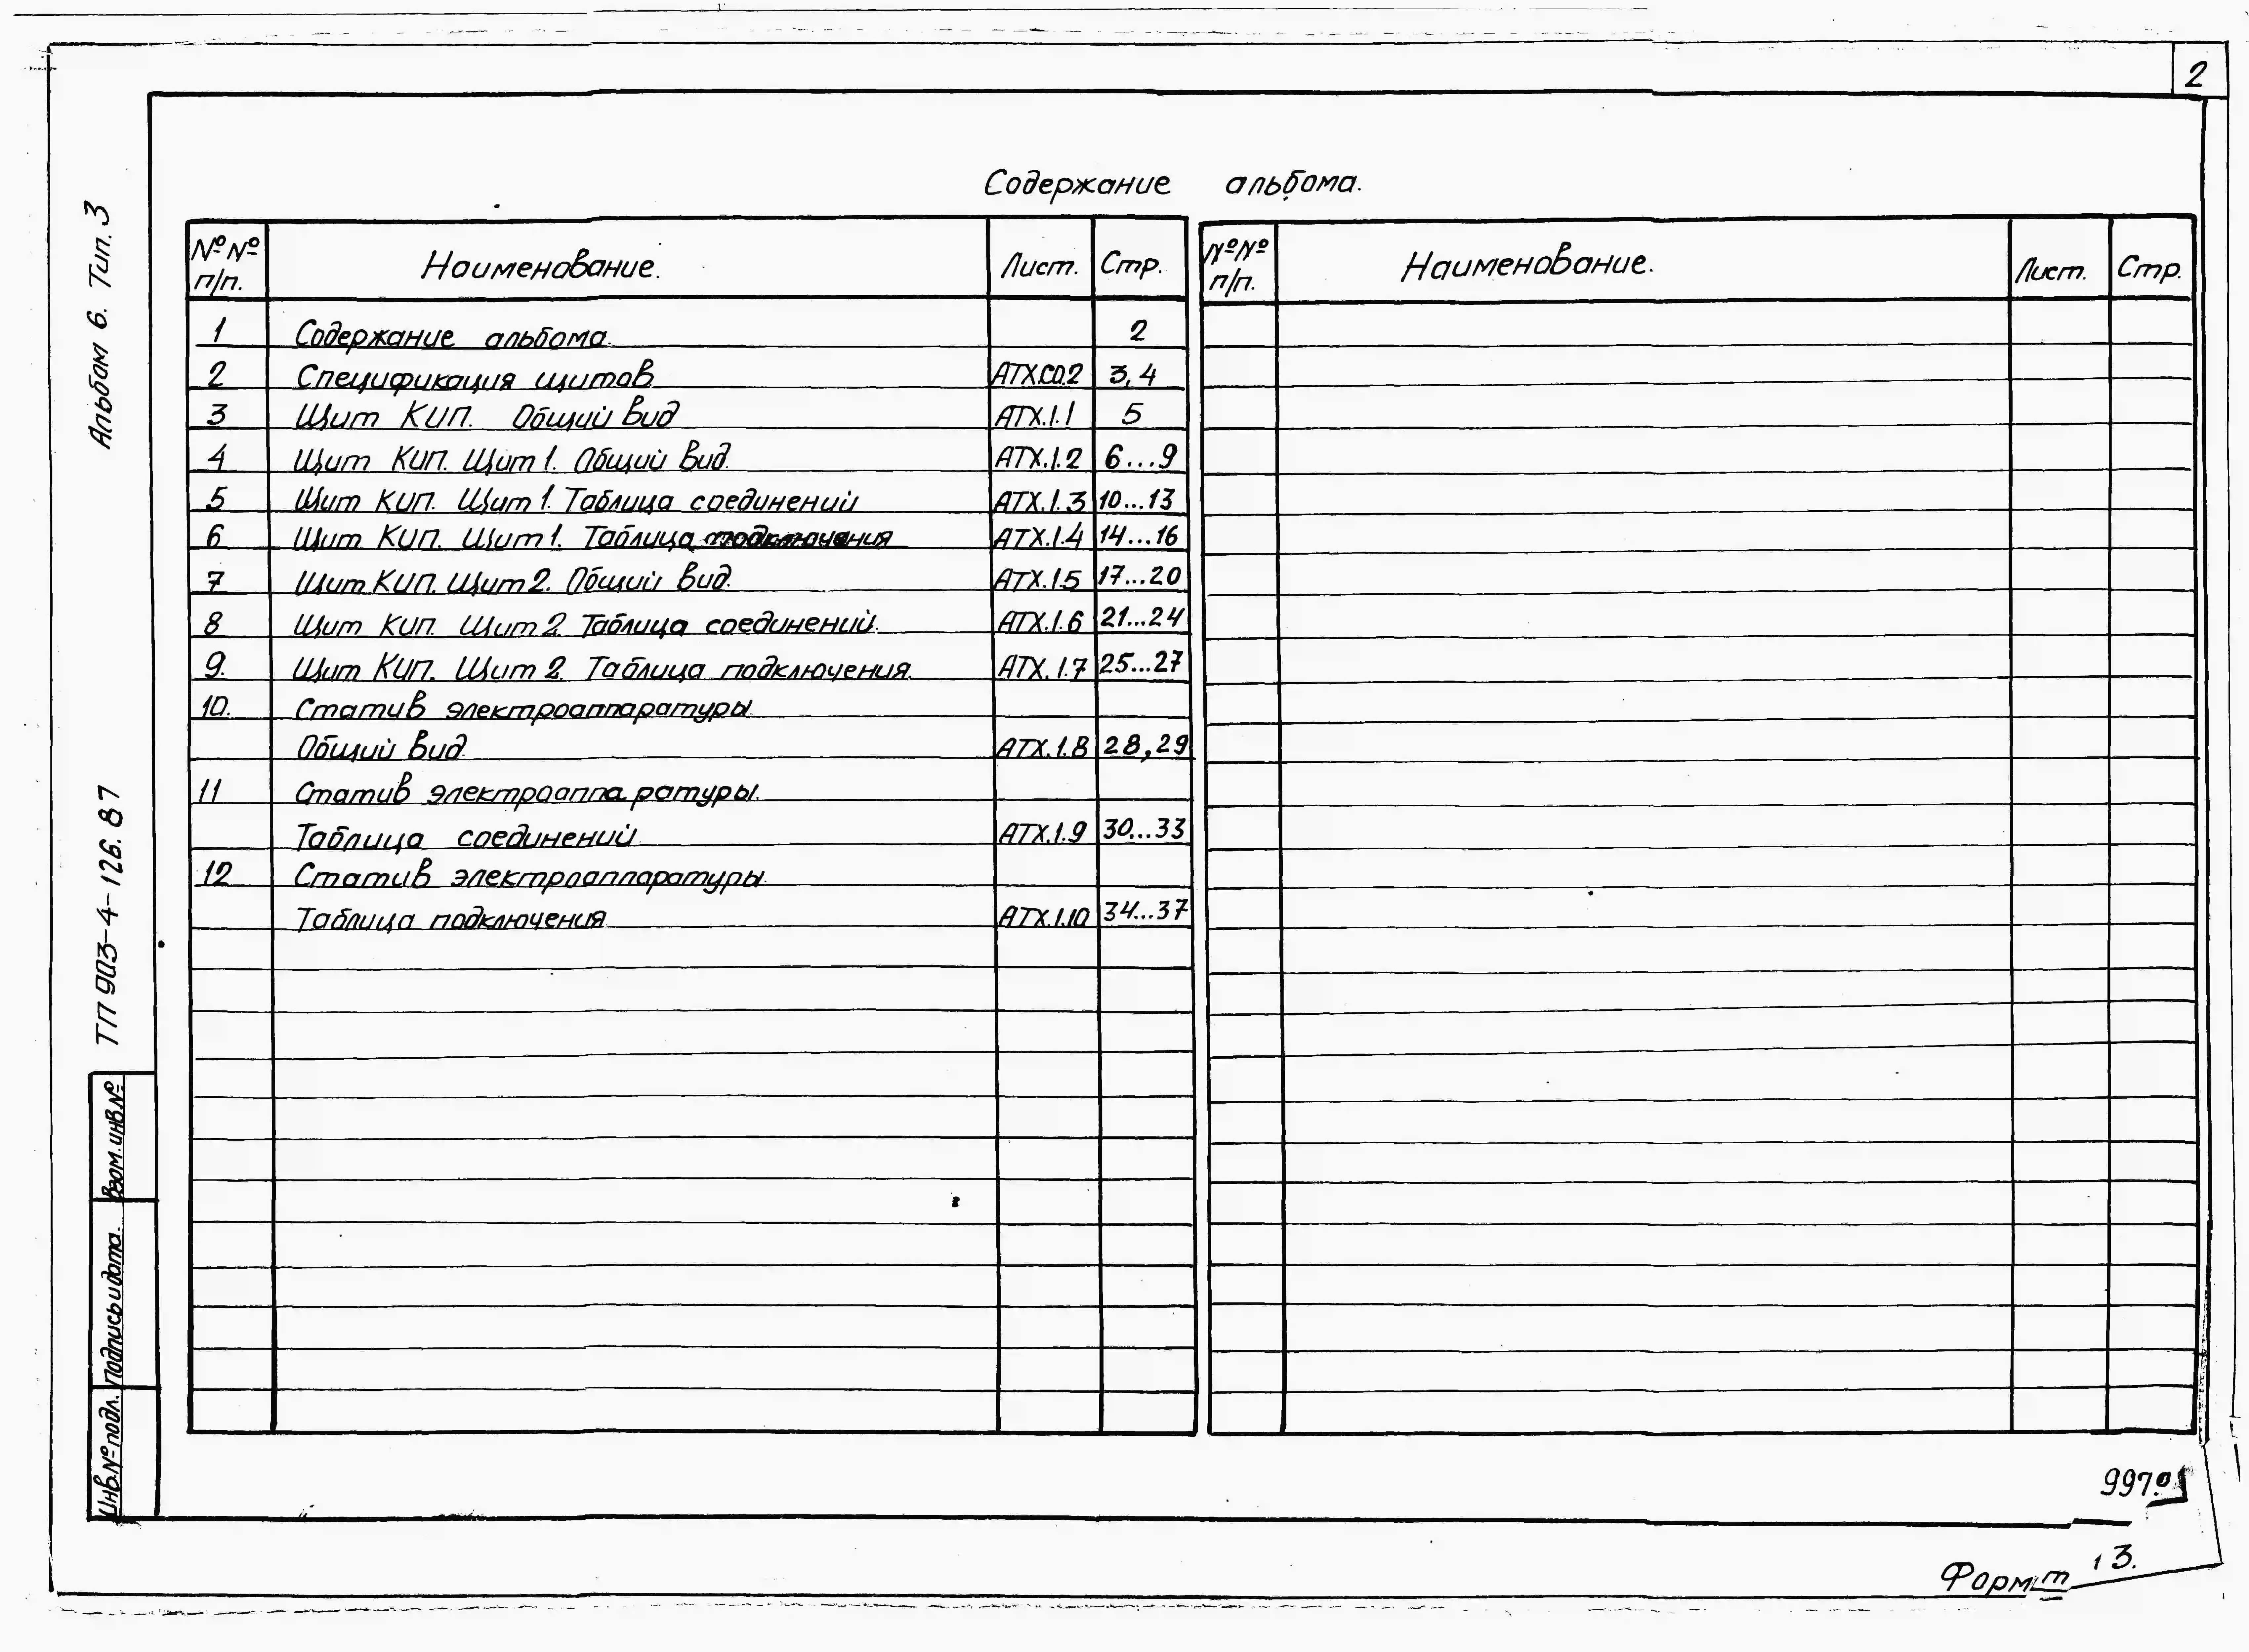 2
Содержание альбома.
№№ п/п. Наименование. Лист. Стр.
1 Содержание альбома. 2
2 Спецификация щитов АТХ.СО.2 3,4
3 Щит КИП. Общий вид АТХ.1.1 5
4 Щит КИП. Щит 1. Общий вид. АТХ.1.2 6...9
5 Щит КИП. Щит 1. Таблица соединений АТХ.1.3 10...13
6 Щит КИП. Щит 1. Таблица подключения АТХ.1.4 14...16
7 Щит КИП. Щит 2. Общий вид. АТХ.1.5 17...20
8 Щит КИП. Щит 2. Таблица соединений. АТХ.1.6 21...24
9. Щит КИП. Щит 2. Таблица подключения. АТХ.1.7 25...27
10. Статив электроаппаратуры.
Общий вид. АТХ.1.8 28,29
11 Статив электроаппаратуры.
Таблица соединений АТХ.1.9 30...33
12 Статив электроаппаратуры.
Таблица подключения АТХ.1.10 34...37
№№ п/п. Наименование. Лист. Стр.
Альбом 6. Тип.3
ТП 903-4-126.87
Взам.инв.№
Подпись и дата.
Инв.№ подл.
Формат